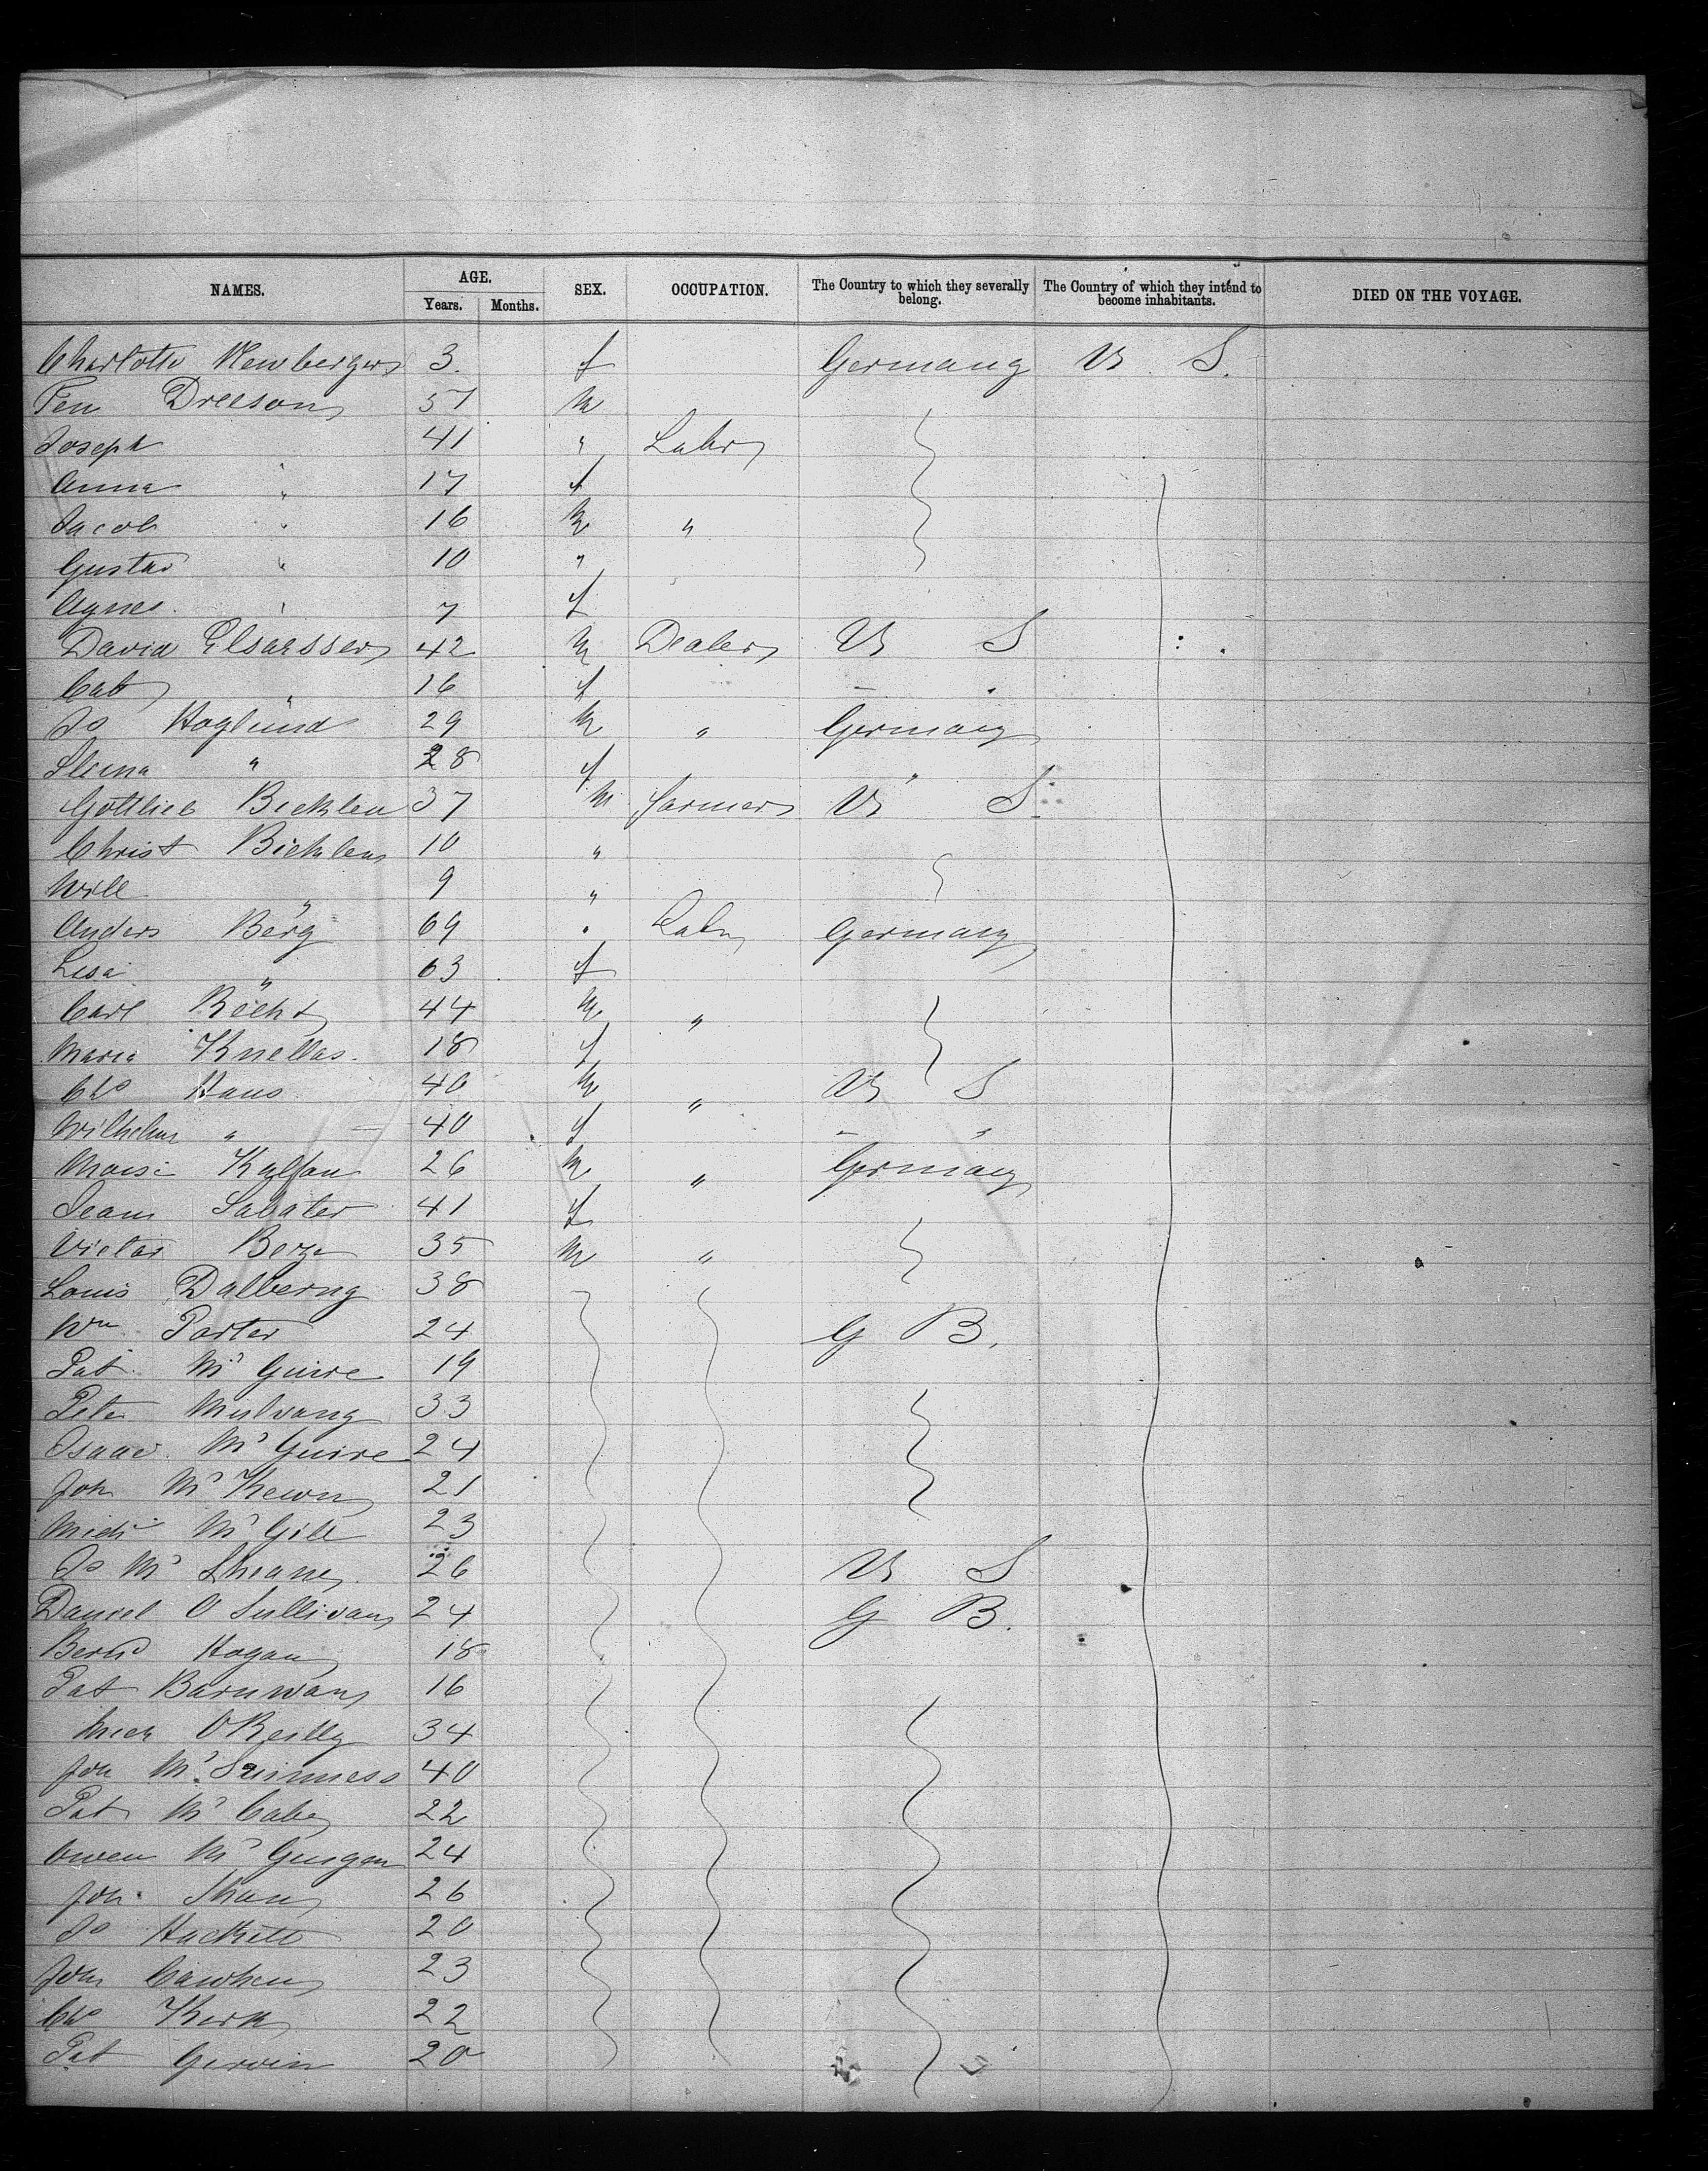 NAMES. AGE. Years. Months. SEX. OCCUPATION. The Country to which they severally belong. The Country of which they intend to become inhabitants. DIED ON THE VOYAGE.
Charlotte Newberger 3. f Germany U. S.
Dreeson 57 m
Joseph 41 " Labr
Anna " 17 f
Jacob " 16 m "
Gustav " 10 "
Agnes. " 7 f
David Elsaesser 42 m Dealer U S
Cat " 16 f
Jo Hoglund 29 m " Germany
" 28 f "
Gottlieb Bicklen 37 m farmer U S.
Christ Bicklen 10 "
Will " 9 "
Anders Berg 69 " Labr Germany
Lisa " 63 f
Carl Richt 44 m "
Maria Knellas. 18 f
Chs Haus 40 m " U S
Wilhelm " 40 f
Kalfan 26 m " Germany
Jean Sabater 41 f
Victor Berge 35 m "
Louis Dalberng 38
Wm Porter 24 G B.
Pat Mc Guire 19
Peter Mulvany 33
Isaac Mc Guire 24
Joh Mc Kewn 21
Mich Mc Gill 23
Jo Mc Shean 26 U S
Daniel O Sullivan 24 G B.
Bernd Hogan 18
Pat Barnwan 16
Mich O Reilly 34
Joh Mc Guinness 40
Pat Mc Cabe 22
Owen Mc Guigan 24
Joh. Shan 26
Jo Hackett 20
Joh Cawhen 23
Chs Kirk 22
Pat Gervin 20